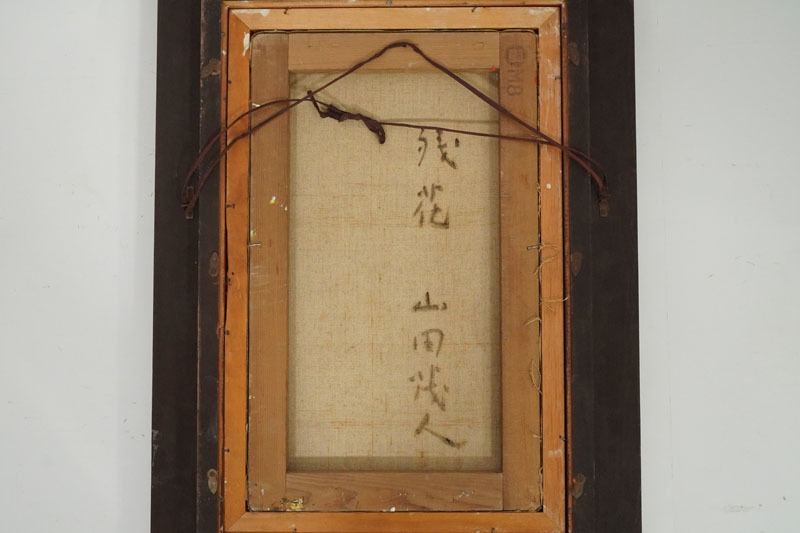 残花 山田茂人
M8